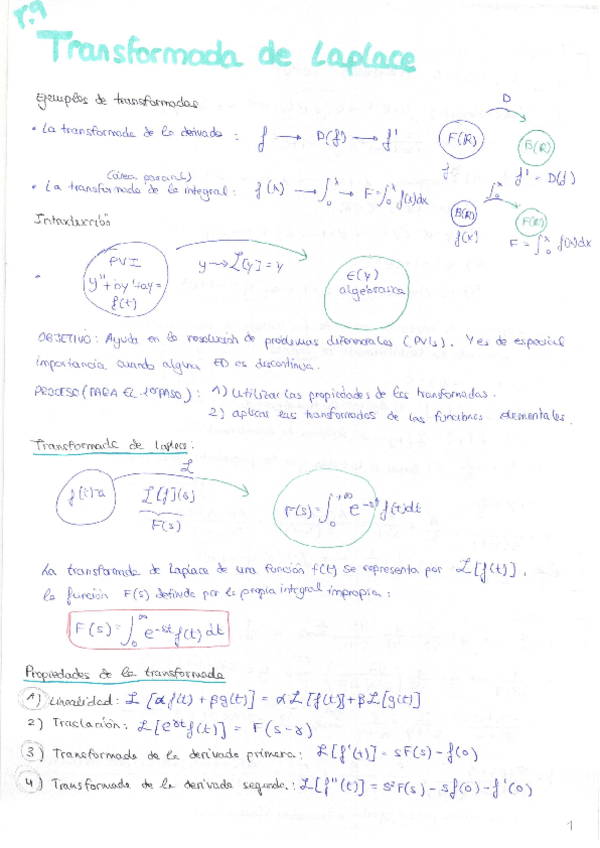 T.9
Transformada de Laplace
Ejemplos de transformadas
• La transformada de la derivada : f → D(f) → f'
D
F(R)
B(R)
f
f' = D(f)
(área parcial)
• La transformada de la integral : f(x) → ∫₀ˣ → F = ∫₀ˣ f(x)dx
∫₀ˣ
B(R)
F(R)
f(x)
F = ∫₀ˣ f(x)dx
Introducción
PVI
y'' + by' + ay = f(t)
y → L[y] = Y
E(Y)
algebraica
OBJETIVO : Ayuda en la resolución de problemas diferenciales (PVIs). Y es de especial
importancia cuando alguna ED es discontinua.
PROCESO (PARA EL 1er PASO) : 1) Utilizar las propiedades de las transformadas.
2) aplicar las transformadas de las funciones elementales.
Transformada de Laplace :
L
f(t)
L[f](s)
F(s)
F(s) = ∫₀^+∞ e^-st f(t)dt
La transformada de Laplace de una función f(t) se representa por L[f(t)],
la función F(s) definida por la propia integral impropia :
F(s) = ∫₀^∞ e^-st f(t) dt
Propiedades de la transformada
1) Linealidad : L[αf(t) + βg(t)] = αL[f(t)] + βL[g(t)]
2) Traslación : L[e^γt f(t)] = F(s-γ)
3) Transformada de la derivada primera : L[f'(t)] = sF(s) - f(0)
4) Transformada de la derivada segunda : L[f''(t)] = s²F(s) - sf(0) - f'(0)
1